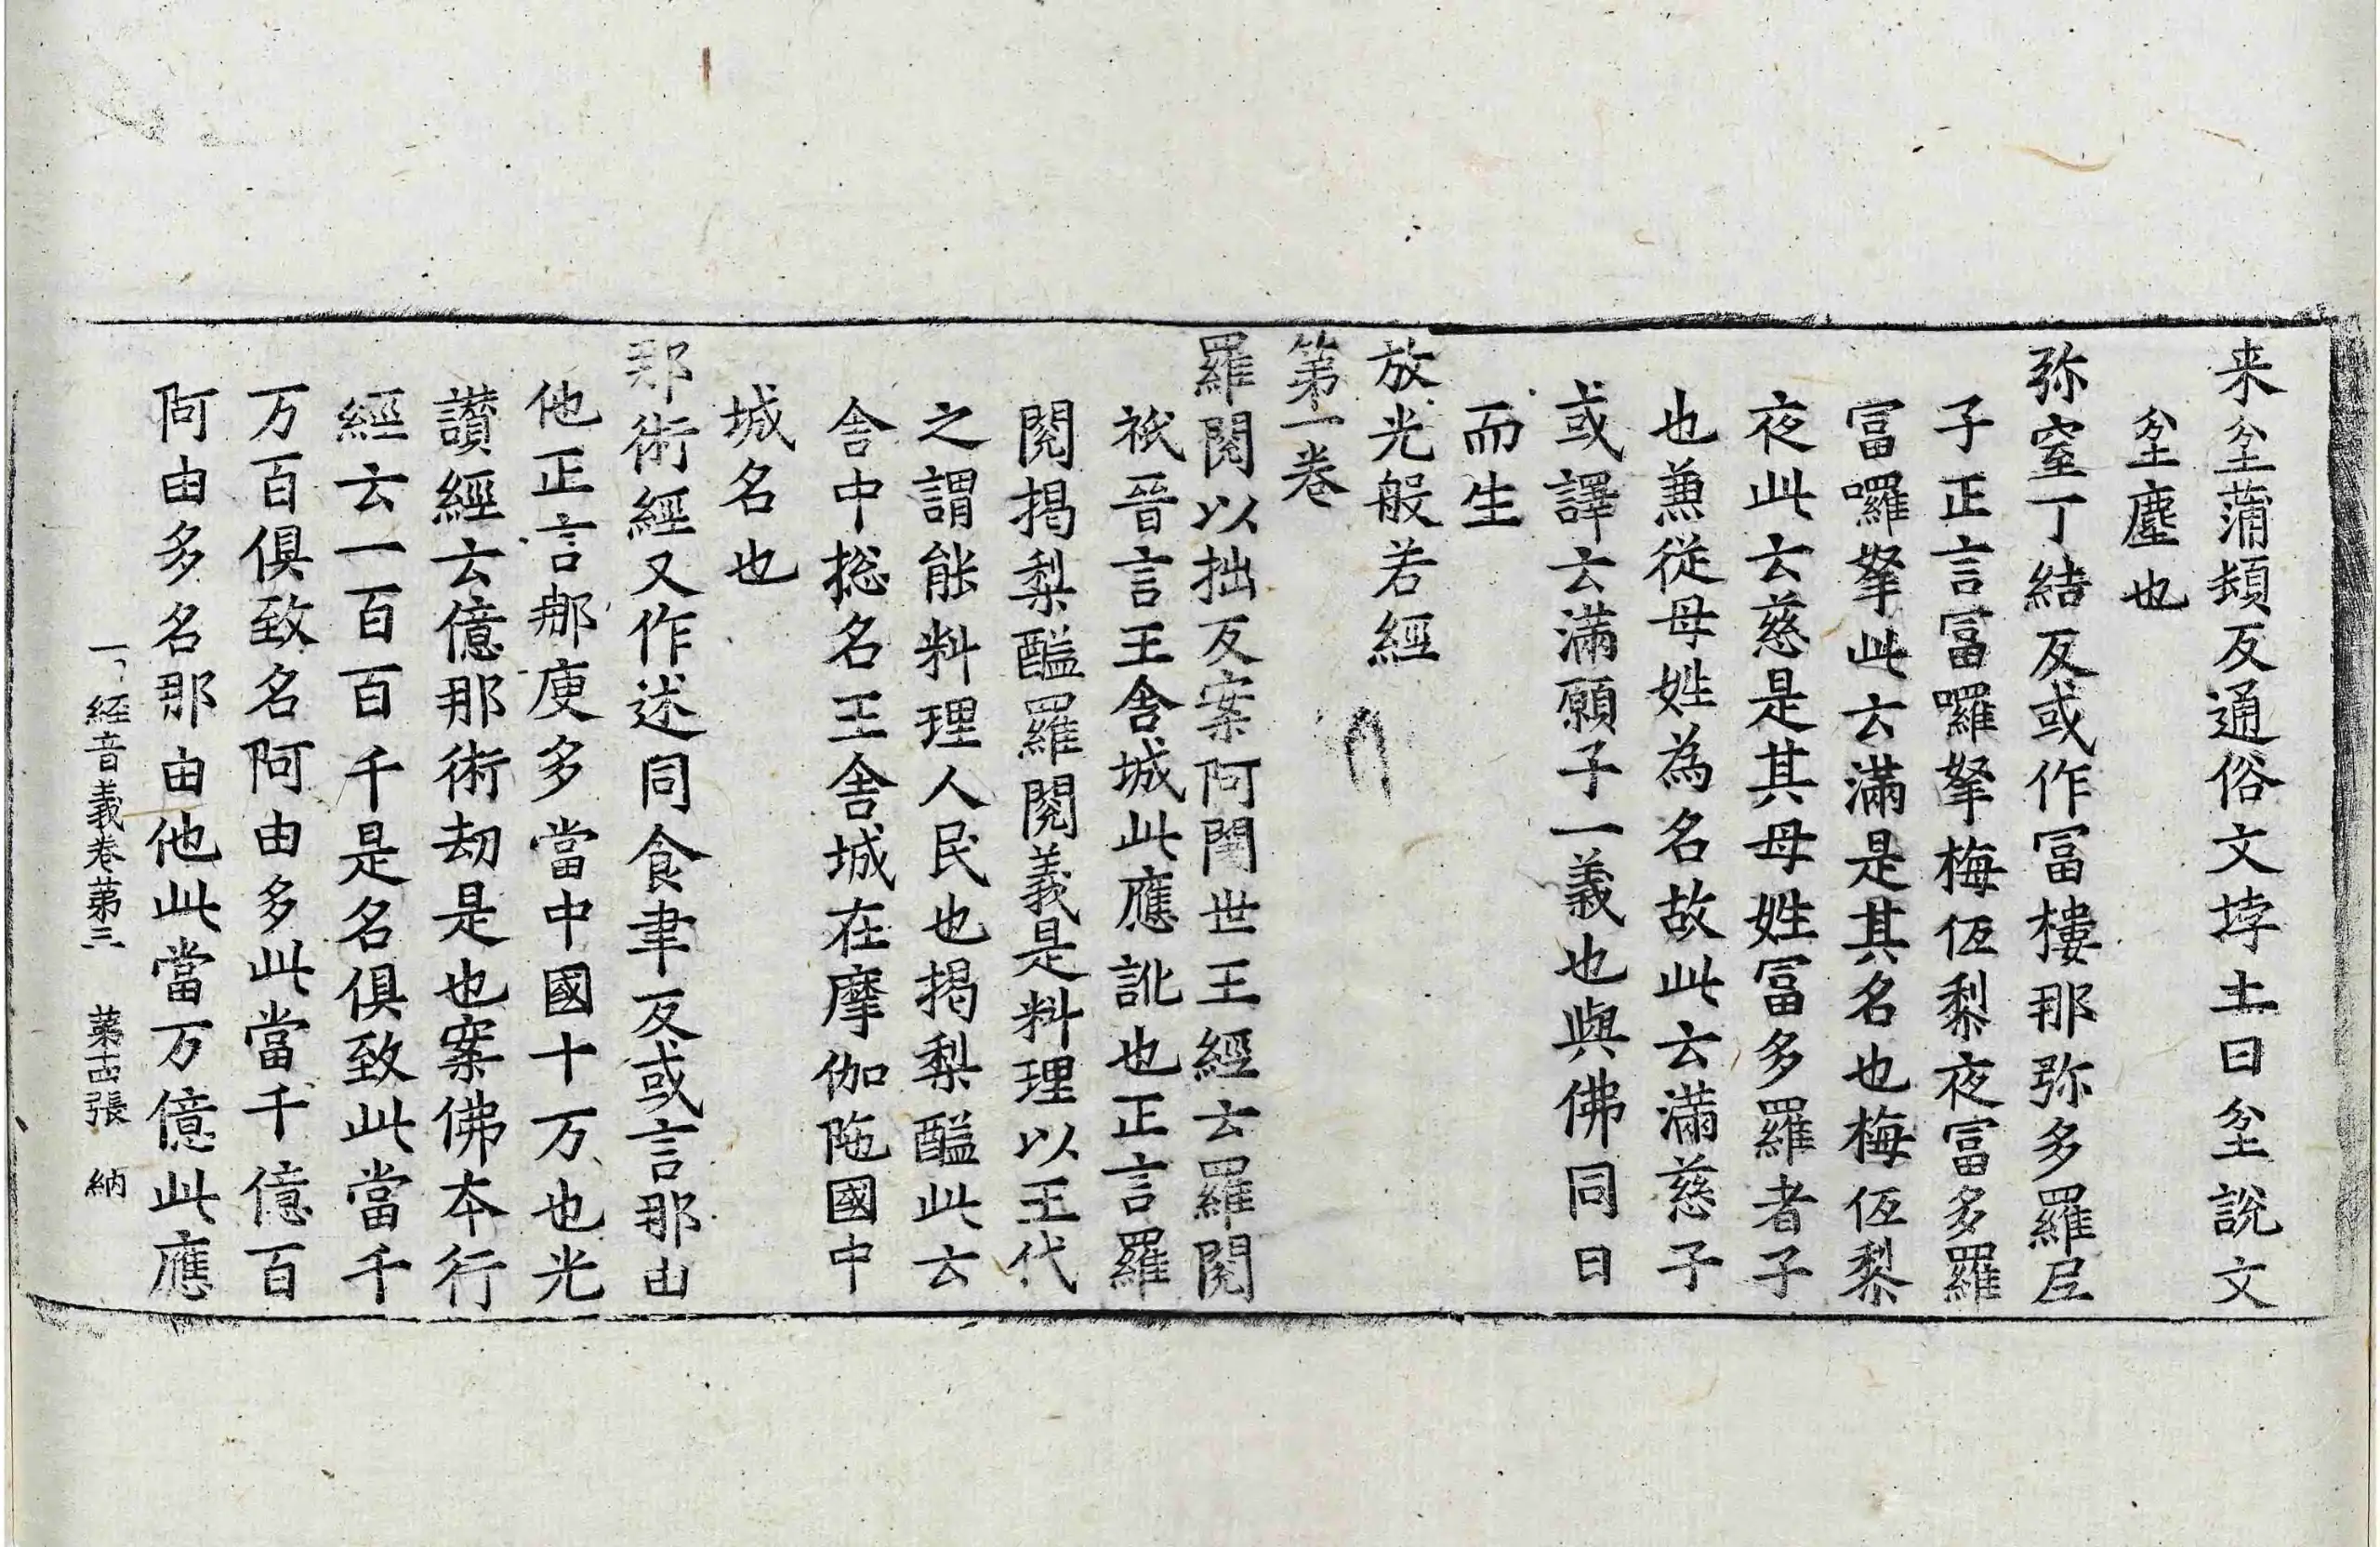 来坌蒲頮反通俗文埻土曰坌說文
坌塵也
弥窒丁結反或作冨樓那弥多羅尼
子正言冨囉拏梅佤梨夜富多羅
富囉拏此云滿是其名也梅佤梨
夜此云慈是其母姓冨多羅者子
也兼從母姓為名故此云滿慈子
或譯云滿願子一義也與佛同日
而生
放光般若經
第一卷
羅閱以拙反案阿闍世王經云羅閱
祇晉言王舍城此應訛也正言羅
閱揭梨醯羅閱義是料理以王代
之謂能料理人民也揭梨醯此云
舍中揔名王舍城在摩伽陁國中
城名也
那術經又作述同食聿反或言那由
他正言那庾多當中國十万也光
讃經云億那術劫是也案佛本行
經云一百百千是名俱致此當千
万百俱致名阿由多此當千億百
阿由多名那由他此當万億此應
一切經音義卷第三 第十四張 納